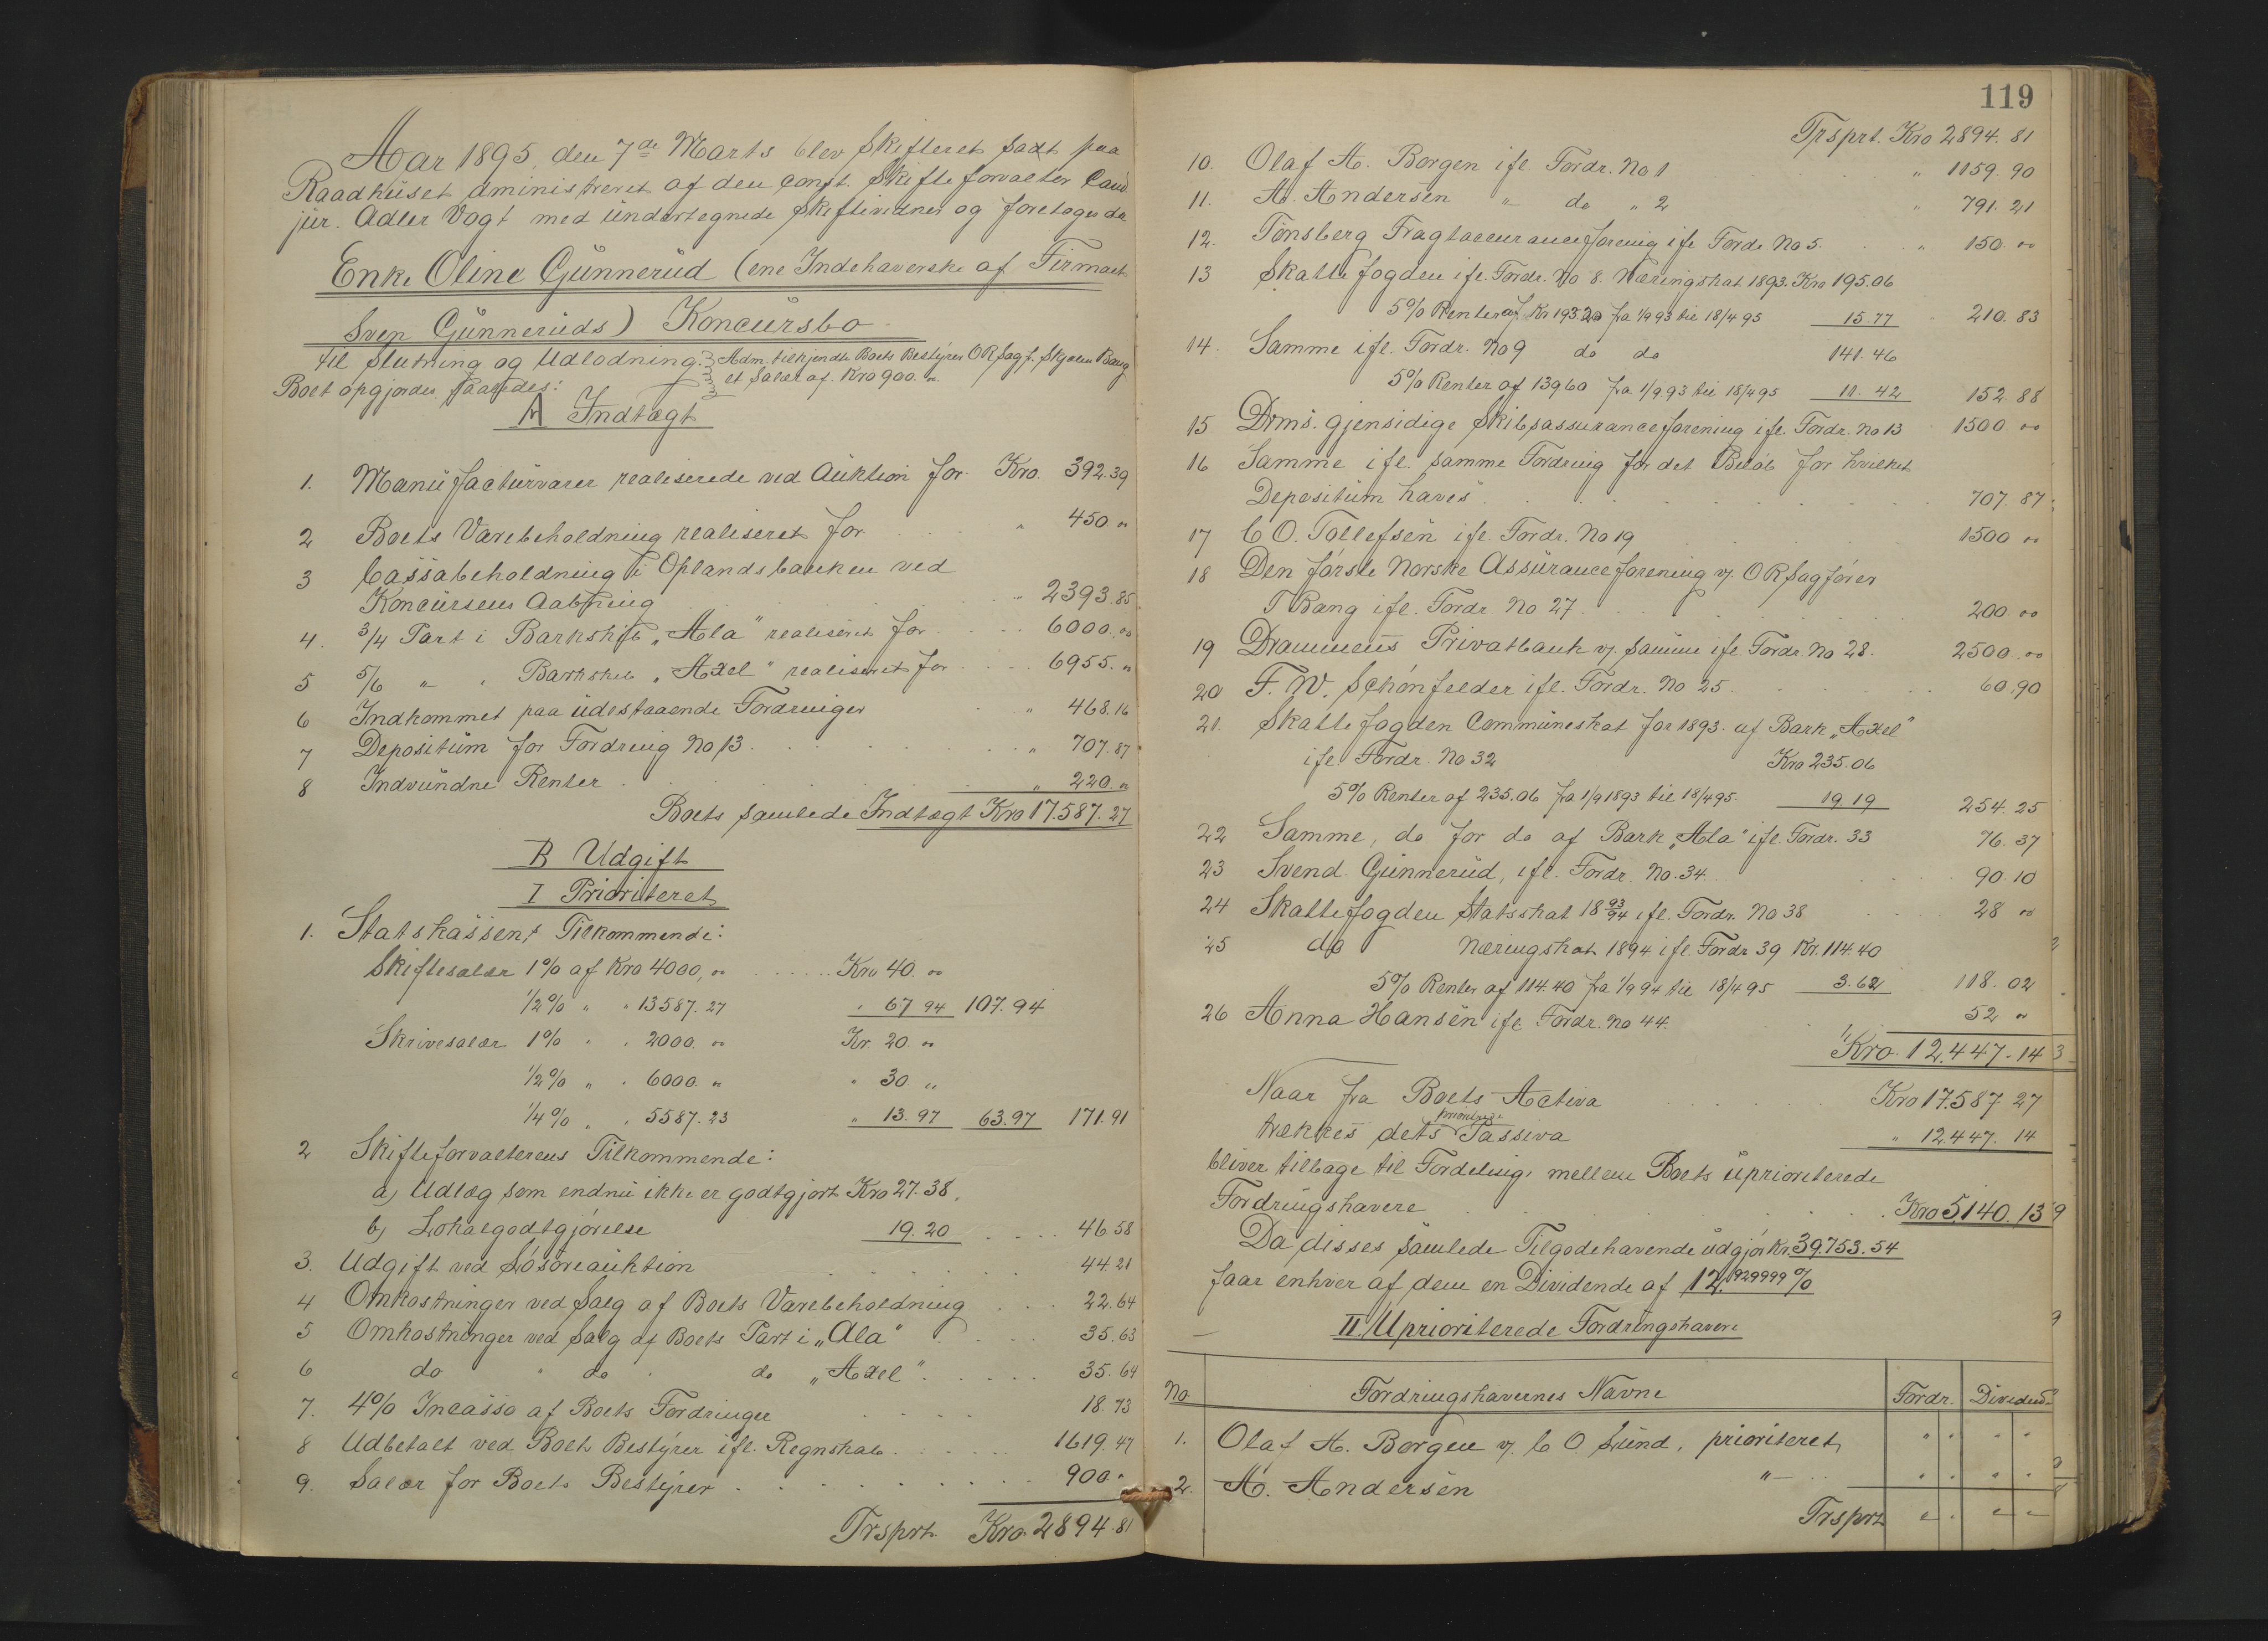 Aar 1895, den 7de Marts blev Skifteret sadt paa
Raadhuset administreret af den const. Skifteforvalter Cand
jur. Adler Vogt med undertegnede Skiftevidner og foretoges da
Enke Oline Gunnerud (ene Indehaverske af Firmaet
Sven Gunneruds) Koncursbo
til Slutning og Udlodning. Adm. tilkjendte Boets Bestyrer ORSagf. Skjolem Bang
et Salær af Kro 900. "
Boet opgjordes saaledes:
A Indtægt
1. Manufacturvarer realiserede ved Auktion for Kro. 392.39
2 Boets Varebeholdning realiseret for " 450 "
3 Cassabeholdning i Oplandsbanken ved
Koncursens Aabning " 2393.85
4. 3/4 Part i Barkskib „Ala" realiseret for 6000.00
5 5/6 " " Barkskib „Axel" realiseret for 6955."
6 Indkommet paa udestaaende Fordringer " 468.16
7 Depositum for Fordring No 13 " 707.87
8 Indvundne Renter " 220."
Boets samlede Indtægt Kro 17.587.27
B Udgift
I Prioriteret
1. Statskassens Tilkommende:
Skiftesalær 1% af Kro 4000,00 Kro 40.00
1/2% " " 13587.27 " 67 94 107.94
Skrivesalær 1% " " 2000.00 Kr. 20.00
1/2% " " 6000. " " 30 "
1/4% " " 5587.23 " 13.97 63.97 171.91
2 Skifteforvalterens Tilkommende:
a) Udlæg som endnu ikke er godtgjort Kro 27.38.
b) Lokalgodtgjörelse 19.20 46.58
3. Udgift ved Lösöreauktion 44.21
4 Omkostninger ved Salg af Boets Varebeholdning 22.64
5 Omkostninger ved Salg af Boets Part i „Ala" 35.63
6 do " do " do „Axel" 35.64
7. 4% Incasso af Boets Fordringer 18.73
8 Udbetalt ved Boets Bestyrer ifl. Regnskab 1619.47
9. Salær for Boets Bestyrer 900."
Trsprt. Kro 2894.81
119
Trsprt. Kro 2894.81
10. Olaf A. Borgen ifl. Fordr. No 1 " 1159.90
11. A. Andersen " do " 2 " 791.21
12. Tönsberg Fragtaccuranceforening ifl. Fordr No 5 " 150.00
13 Skattefogden ifl. Fordr. No 8. Næringskat 1893. Kro 195.06
5% Renter af Kr 193 20 fra 1/9 93 til 18/4 95 15.77 210.83
14. Samme ifl. Fordr. No 9 do do 141.46
5% Renter af 13960 fra 1/9 93 til 18/4 95 11.42 152.88
15 Drms. gjensidige Skibsassuranceforening ifl. Fordr. No 13 1500 00
16 Samme ifl. samme Fordring for det Belöb for hvilket
Depositum haves 707.87
17 C O. Tollefsen ifl. Fordr. No 19 1500 00
18 Den förste Norske Assuranceforening v. ORSagförer
T Bang ifl. Fordr. No 27 200.00
19 Drammens Privatbank v. samme ifl. Fordr. No 28. 2500.00
20 F. W. Schönfelder ifl. Fordr. No 25 60.90
21. Skattefogden Communeskat for 1893. af Bark „Axel"
ifl. Fordr. No 32 Kro 235.06
5% Renter af 235.06 fra 1/9 1893 til 18/4 95. 19 19 254.25
22 Samme, do for do af Bark „Ala" ifl. Fordr. 33 76.37
23 Svend Gunnerud, ifl. Fordr. No. 34. 90.10
24 Skattefogden Statsskat 18 93/94 ifl. Fordr. No 38 28 00
25 do Næringskat 1894 ifl. Fordr 39 Kr. 114.40
5% Renter af 114.40 fra 1/9 94 til 18/4 95 3.62 118.02
26 Anna Hansen ifl. Fordr. No 44. 52 "
Kro. 12.447.14
Naar fra Boets Activa Kro 17.587 27
trækkes dets prioriterede Passiva " 12.447.14
bliver tilbage til Fordeling mellem Boets upriorieterede
Fordringshavere Kro 5.140.13
Da disses samlede Tilgodehavende udgjör Kr. 39.753.54
faar enhver af dem en Dividende af 12.929999 %
II. Uprioriterede Fordringshavere
No Fordringshavernes Navne Fordr. Dividend
1. Olaf A. Borgen v. C O. Lund, prioriteret " " " "
2. A. Andersen " " " " "
Trsprt " " " "